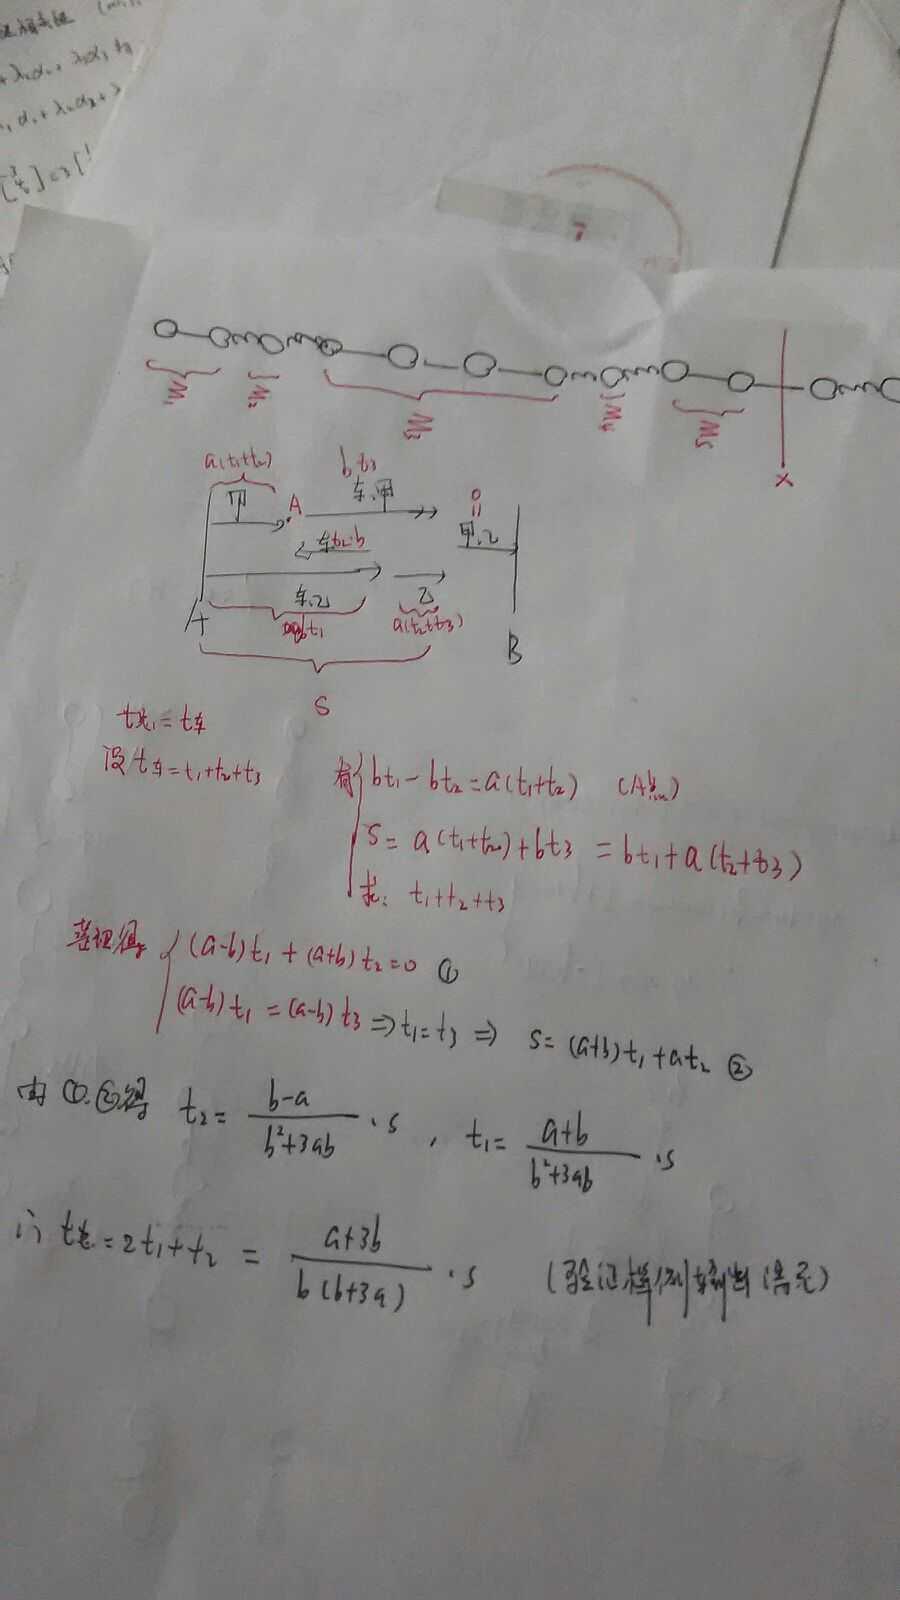 7
M₁ M₂ M₃ M₄ M₅
X
a(t₁+t₂) bt₃
甲 A 车.甲 0
= 甲.乙
车t₂·b
A 车.乙 乙
bt₁ a(t₂+t₃)
B
S
t总=t车
设t车=t₁+t₂+t₃
有{bt₁-bt₂=a(t₁+t₂) (A点)
S=a(t₁+t₂)+bt₃=bt₁+a(t₂+t₃)
求: t₁+t₂+t₃
整理得{(a-b)t₁+(a+b)t₂=0 ①
(a-b)t₁=(a-b)t₃⇒t₁=t₃⇒ S=(a+b)t₁+at₂ ②
由①.②得 t₂=(b-a)/(b²+3ab)·S , t₁=(a+b)/(b²+3ab)·S
∴ t总=2t₁+t₂=(a+3b)/(b(b+3a))·S (验证样例